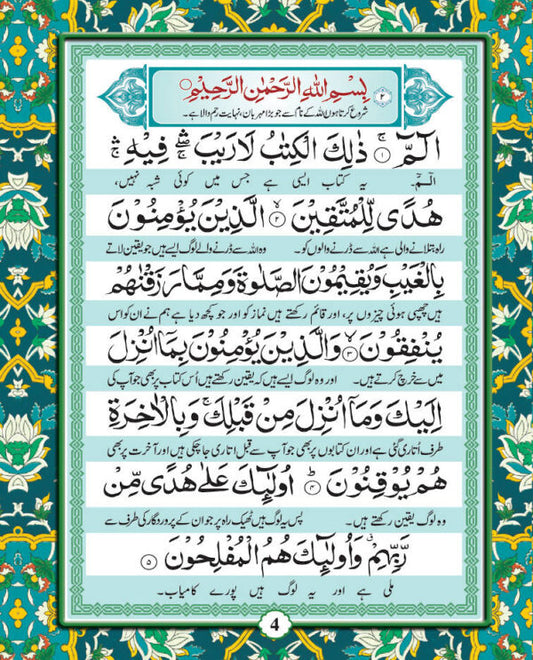 بِسْمِ اللهِ الرَّحْمٰنِ الرَّحِيْمِ ۝ ٢
شروع کرتا ہوں اللہ کے نام سے جو بڑا مہربان، نہایت رحم والا ہے۔
الٓمّٓ ۚ ۝١ ذٰلِكَ الْكِتٰبُ لَا رَيْبَ ۛۖ فِيْهِ ۛۚ
الٓمّٓ۔ یہ کتاب ایسی ہے جس میں کوئی شبہ نہیں،
هُدًى لِّلْمُتَّقِيْنَ ۝٢ الَّذِيْنَ يُؤْمِنُوْنَ
راہ بتلانے والی ہے اللہ سے ڈرنے والوں کو۔ وہ اللہ سے ڈرنے والے لوگ ایسے ہیں جو یقین لاتے
بِالْغَيْبِ وَيُقِيْمُوْنَ الصَّلٰوةَ وَمِمَّا رَزَقْنٰهُمْ
ہیں چھپی ہوئی چیزوں پر، اور قائم رکھتے ہیں نماز کو اور جو کچھ دیا ہے ہم نے ان کو اس
يُنْفِقُوْنَ ۝٣ وَالَّذِيْنَ يُؤْمِنُوْنَ بِمَآ اُنْزِلَ
میں سے خرچ کرتے ہیں۔ اور وہ لوگ ایسے ہیں کہ یقین رکھتے ہیں اُس کتاب پر بھی جو آپ کی
اِلَيْكَ وَمَآ اُنْزِلَ مِنْ قَبْلِكَ ۚ وَبِالْاٰخِرَةِ
طرف اُتاری گئی ہے اور ان کتابوں پر بھی جو آپ سے قبل اتاری جا چکی ہیں اور آخرت پر بھی
هُمْ يُوْقِنُوْنَ ؕ ۝٤ اُولٰٓئِكَ عَلٰى هُدًى مِّنْ
وہ لوگ یقین رکھتے ہیں۔ پس یہ لوگ ہیں ٹھیک راہ پر جو ان کے پروردگار کی طرف سے
رَّبِّهِمْ ۗ وَاُولٰٓئِكَ هُمُ الْمُفْلِحُوْنَ ۝٥
ملی ہے اور یہ لوگ ہیں پورے کامیاب۔
4